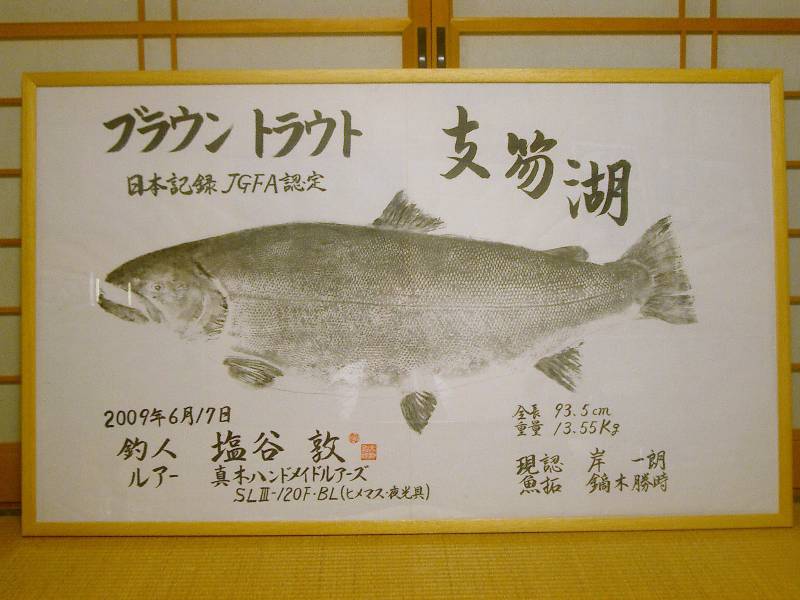 ブラウン トラウト 支笏湖
日本記録 JGFA認定
2009年6月17日
釣人 塩谷 敦
ルアー 真木ハンドメイドルアーズ
SLⅢ-120F・BL(ヒメマス・夜光貝)
全長 93.5cm
重量 13.55Kg
現認 岸 一朗
魚拓 鏑木勝時